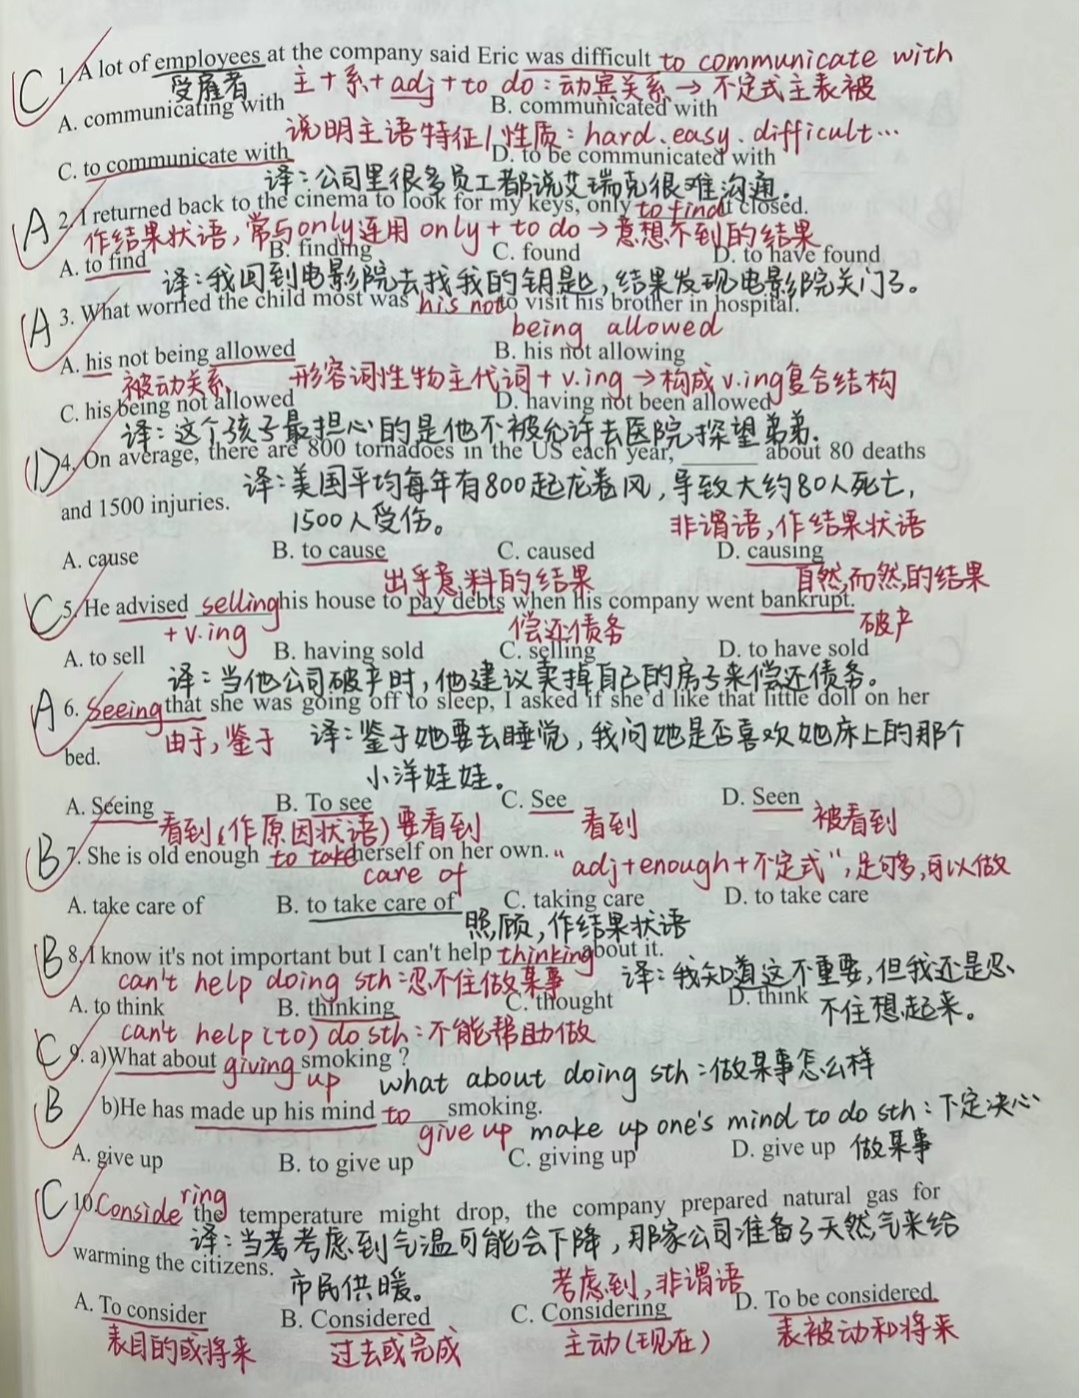 C 1. A lot of employees at the company said Eric was difficult to communicate with
受雇者 主+系+adj+to do:动宾关系→不定式主表被
A. communicating with B. communicated with
说明主语特征/性质:hard、easy、difficult…
C. to communicate with D. to be communicated with
译:公司里很多员工都说艾瑞克很难沟通.
A 2. I returned back to the cinema to look for my keys, only to find it closed.
作结果状语,常与only连用 only+to do→意想不到的结果
A. to find B. finding C. found D. to have found
译:我回到电影院去找我的钥匙,结果发现电影院关门了。
A 3. What worried the child most was his not to visit his brother in hospital.
being allowed
A. his not being allowed B. his not allowing
被动关系 形容词性物主代词+v.ing→构成v.ing复合结构
C. his being not allowed D. having not been allowed
译:这个孩子最担心的是他不被允许去医院探望弟弟.
D 4. On average, there are 800 tornadoes in the US each year, ______ about 80 deaths
and 1500 injuries. 译:美国平均每年有800起龙卷风,导致大约80人死亡,
1500人受伤。 非谓语,作结果状语
A. cause B. to cause C. caused D. causing
出乎意料的结果 自然而然的结果
C 5. He advised selling his house to pay debts when his company went bankrupt.
+v.ing 偿还债务 破产
A. to sell B. having sold C. selling D. to have sold
译:当他公司破产时,他建议卖掉自己的房子来偿还债务。
A 6. Seeing that she was going off to sleep, I asked if she'd like that little doll on her
由于,鉴于 译:鉴于她要去睡觉,我问她是否喜欢她床上的那个
bed.
小洋娃娃。
A. Seeing B. To see C. See D. Seen
看到(作原因状语) 要看到 看到 被看到
B 7. She is old enough to take herself on her own. "adj+enough+不定式",足够,可以做
care of
A. take care of B. to take care of C. taking care D. to take care
照顾,作结果状语
B 8. I know it's not important but I can't help thinking about it.
can't help doing sth:忍不住做某事 译:我知道这不重要,但我还是忍
A. to think B. thinking C. thought D. think 不住想起来。
can't help (to) do sth:不能帮助做
C 9. a)What about giving smoking ?
up what about doing sth:做某事怎么样
B b)He has made up his mind to smoking.
give up make up one's mind to do sth:下定决心
A. give up B. to give up C. giving up D. give up 做某事
C 10. Considering the temperature might drop, the company prepared natural gas for
译:当考虑到气温可能会下降,那家公司准备了天然气来给
warming the citizens.
市民供暖。 考虑到,非谓语
A. To consider B. Considered C. Considering D. To be considered
表目的或将来 过去或完成 主动(现在) 表被动和将来